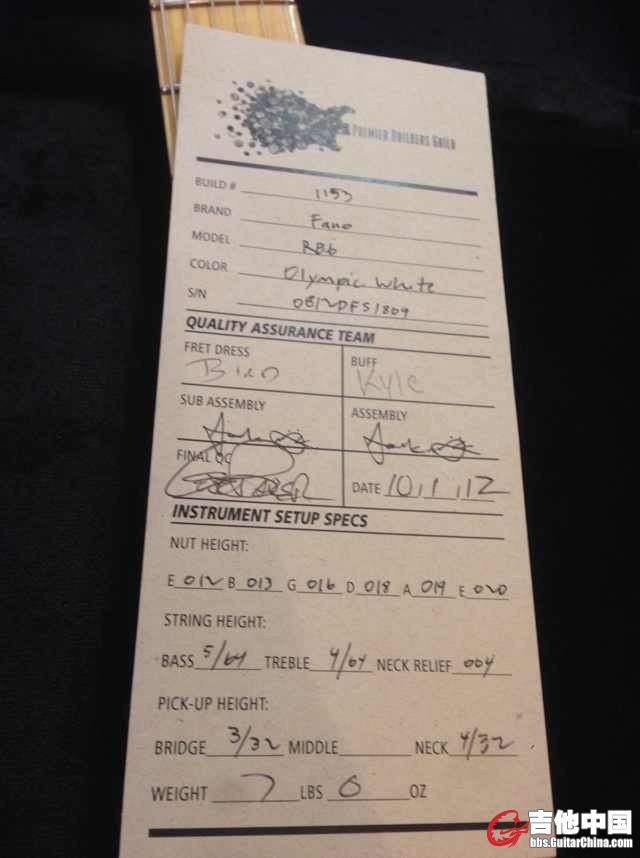 PREMIER BUILDERS GUILD
BUILD # 1153
BRAND Fano
MODEL RB6
COLOR Olympic White
S/N 0812DFS1809
QUALITY ASSURANCE TEAM
FRET DRESS BUFF
Kyle
SUB ASSEMBLY ASSEMBLY
FINAL QC
DATE 10.1.12
INSTRUMENT SETUP SPECS
NUT HEIGHT:
E 012 B 013 G 016 D 018 A 019 E 020
STRING HEIGHT:
BASS 5/64 TREBLE 4/64 NECK RELIEF 004
PICK-UP HEIGHT:
BRIDGE 3/32 MIDDLE NECK 4/32
WEIGHT 7 LBS 0 OZ
吉他中国
bbs.GuitarChina.com